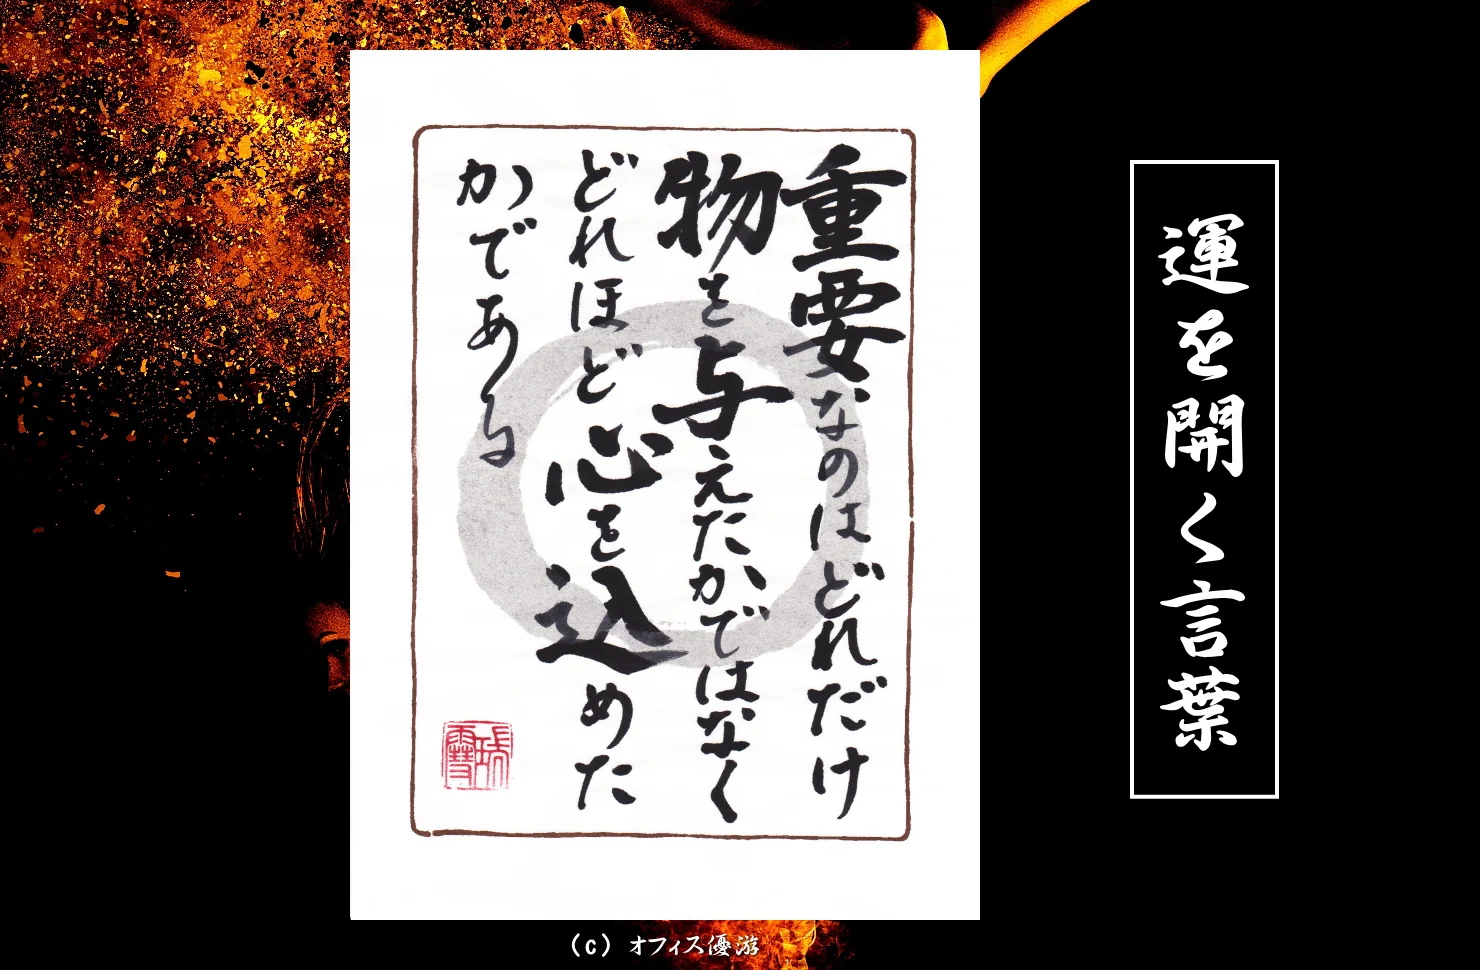 運を開く言葉
重要なのはどれだけ
物を与えたかではなく
どれほど心を込めた
かである
(c) オフィス優游